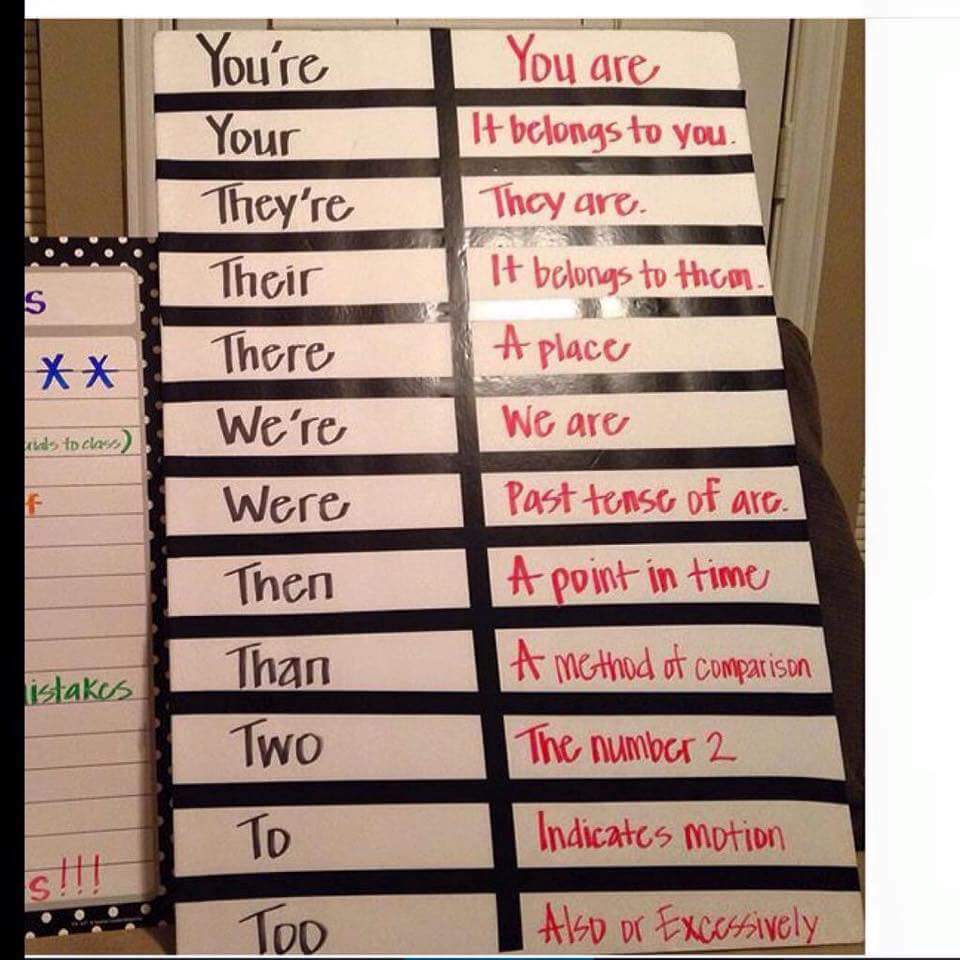 You're You are
Your It belongs to you.
They're They are.
Their It belongs to them.
There A place
We're We are
Were Past tense of are.
Then A point in time
Than A method of comparison
Two The number 2
To Indicates motion
Too Also or Excessively
s
X X
to class)
f
istakes
s!!!